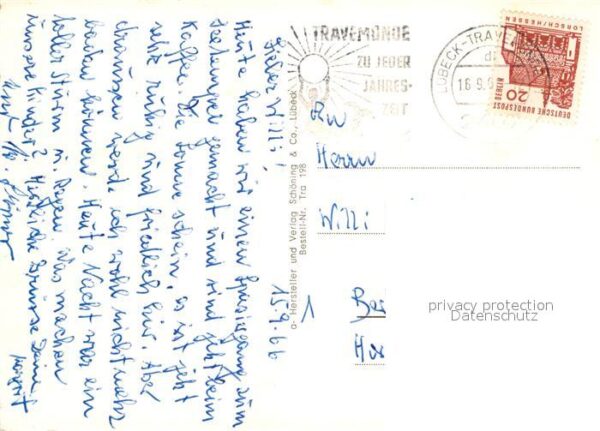 15.9.66
Lieber Willi!
Heute haben wir einen Spaziergang zum
Seetempel gemacht und sind jetzt beim
Kaffee. Die Sonne schien, es ist jetzt
sehr ruhig und friedlich hier. Aber
schwimmen werde ich wohl nicht mehr
baden können. Heute Nacht war ein
toller Sturm u. Regen. Was machen
unsere Kinder? Herzliche Grüsse Deine
TRAVEMÜNDE
ZU JEDER
JAHRES-
ZEIT
LÜBECK-TRAVEMÜNDE
16.9.
DEUTSCHE BUNDESPOST
BERLIN
20
LORSCH/HESSEN
An
Herrn
Willi
1
Ber
Hersteller und Verlag Schöning & Co., Lübeck
Bestell-Nr. Tra 198
privacy protection
Datenschutz